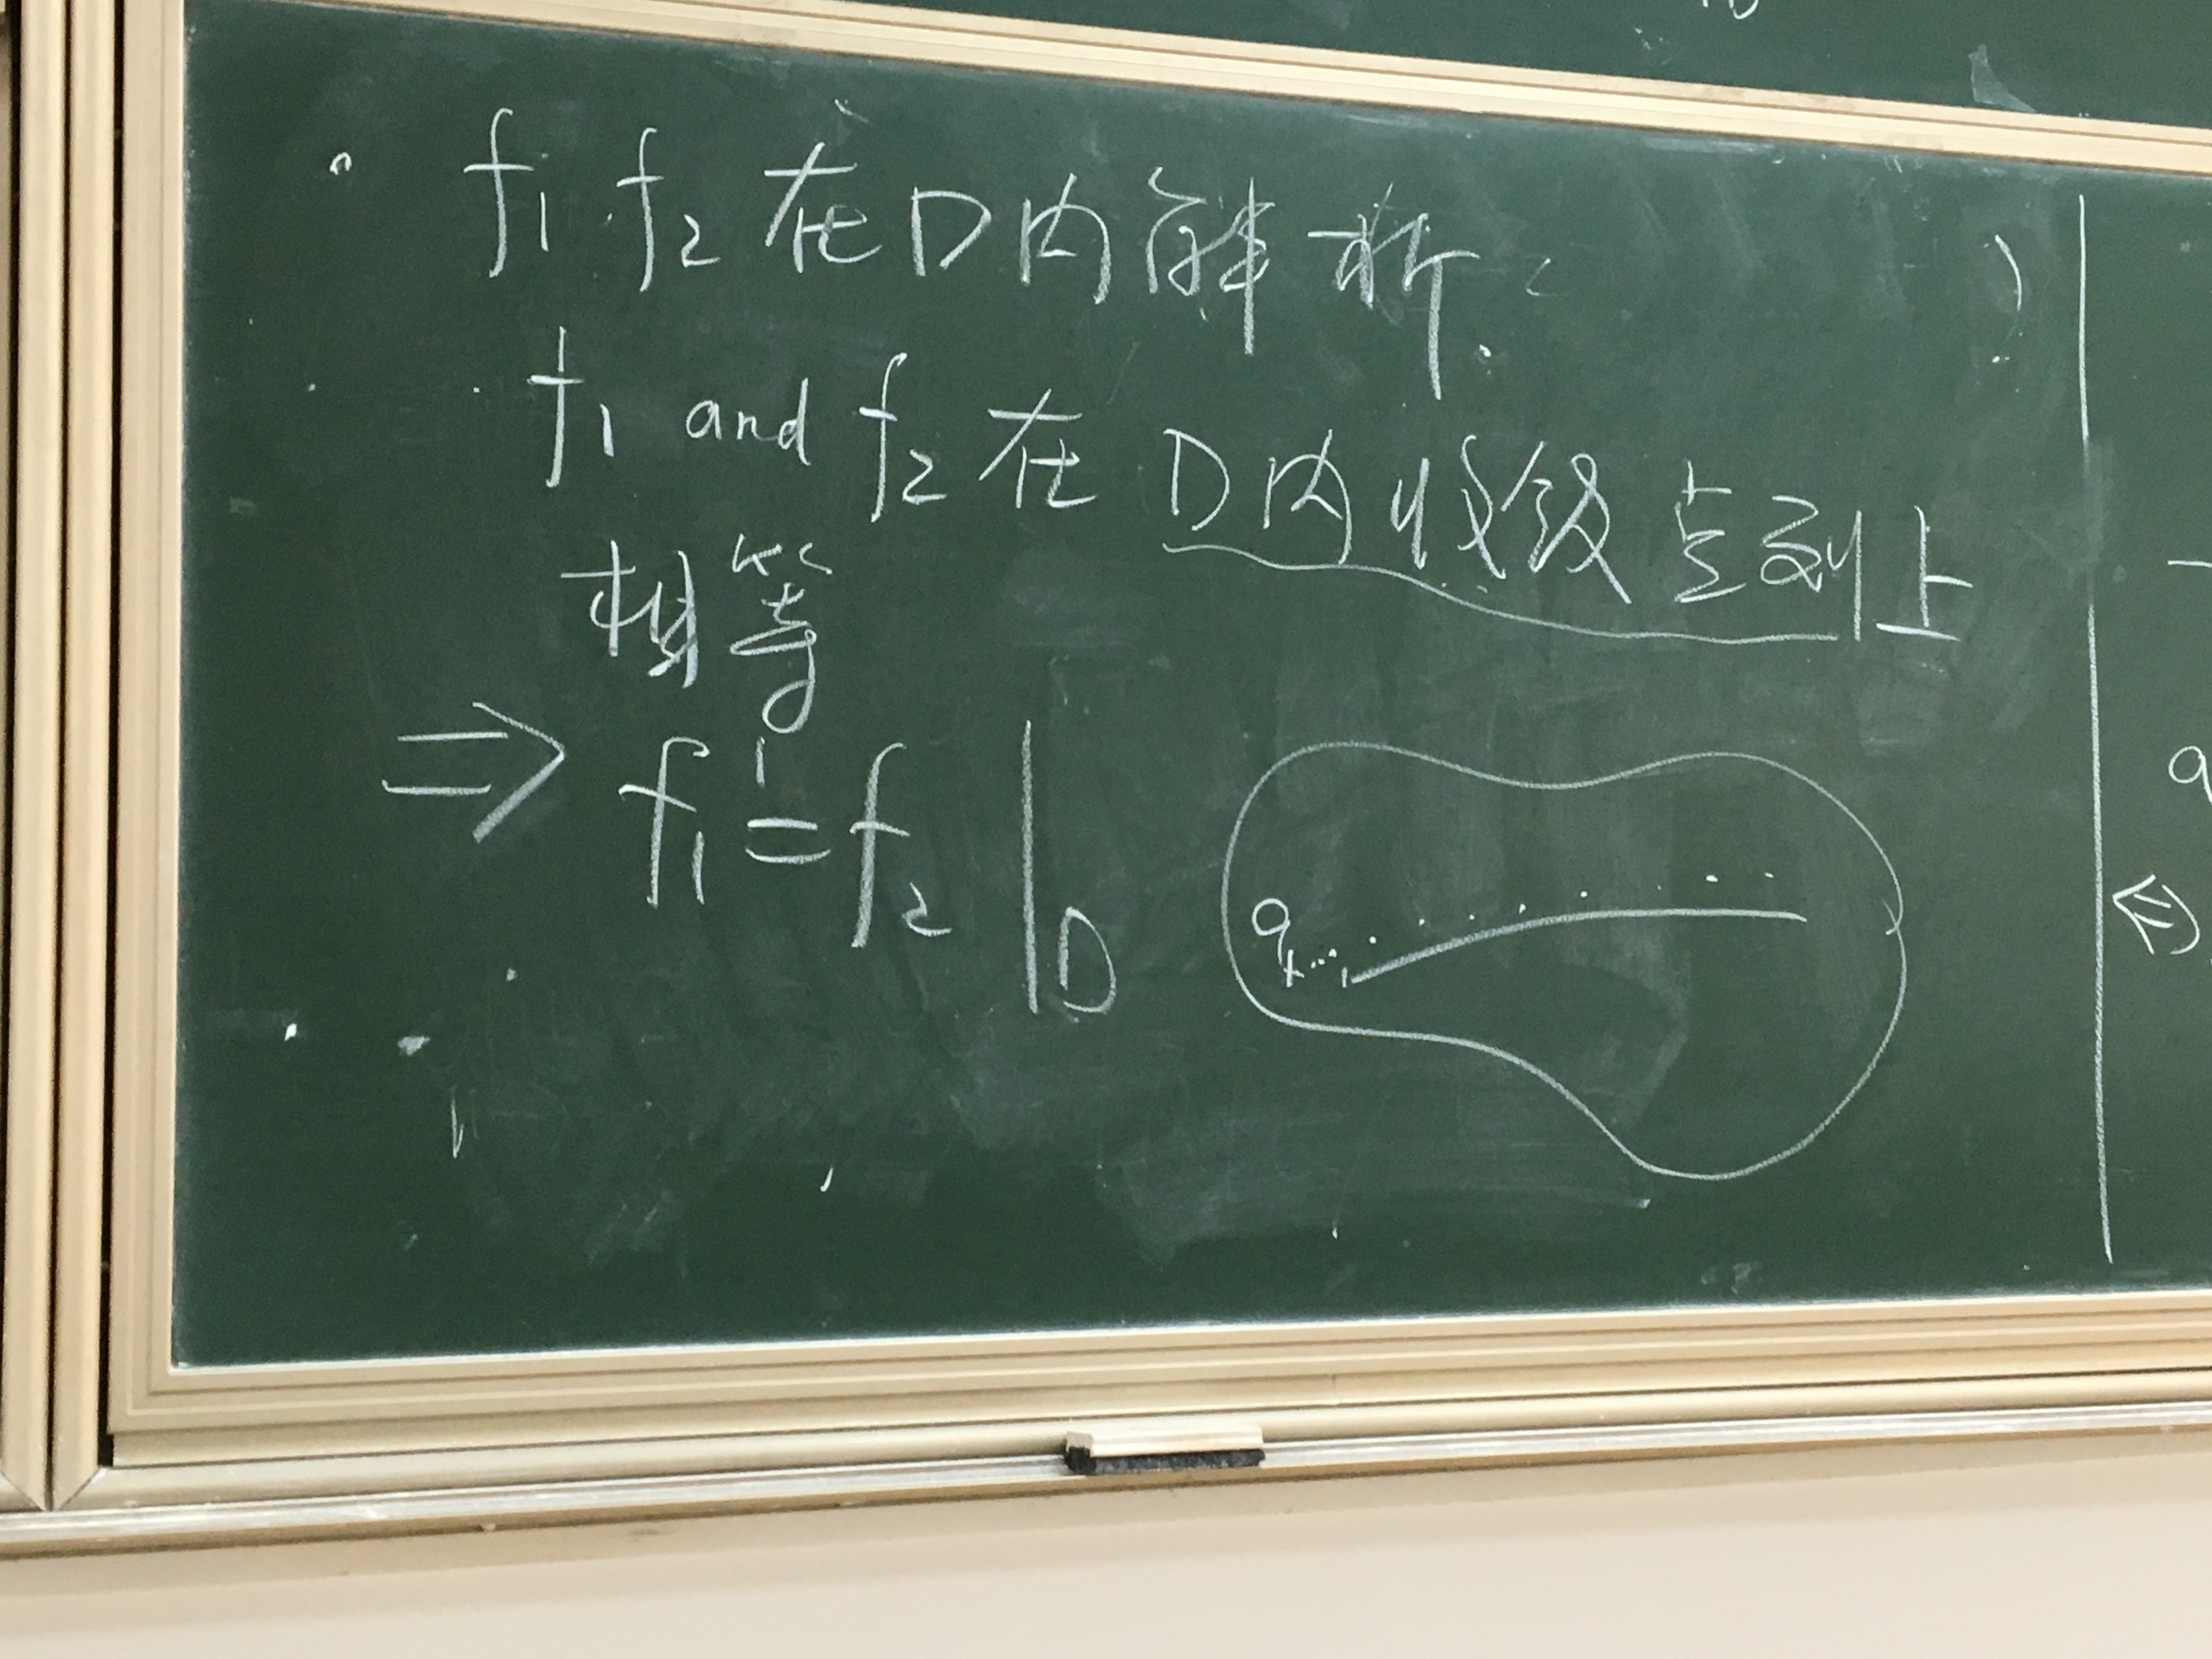 f₁ f₂ 在 D 内解析.
f₁ and f₂ 在 D 内收敛点列上
相等
⇒ f₁ = f₂ |D
a
a
⇔